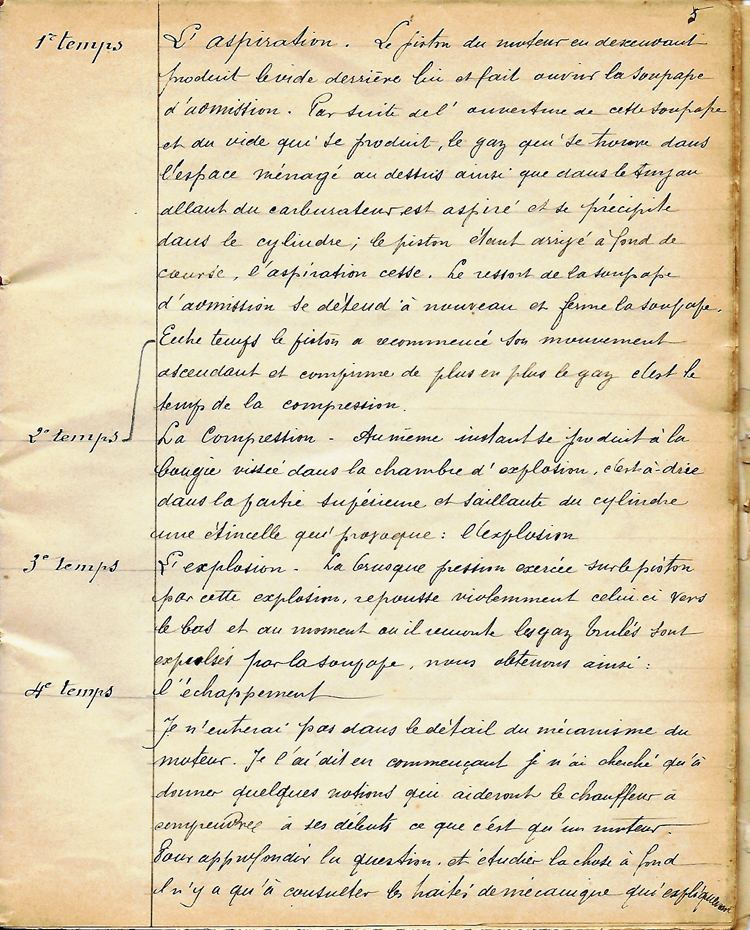 5
1er temps L'aspiration. Le piston du moteur en descendant
produit le vide derrière lui et fait ouvrir la soupape
d'admission. Par suite de l'ouverture de cette soupape
et du vide qui se produit, le gaz qui se trouve dans
l'espace ménagé au dessus ainsi que dans le tuyau
allant du carburateur est aspiré et se précipite
dans le cylindre; le piston étant arrivé à fond de
course, l'aspiration cesse. Le ressort de la soupape
d'admission se détend à nouveau et ferme la soupape.
temps le piston a recommencé son mouvement
ascendant et comprime de plus en plus le gaz c'est le
temps de la compression.
2e temps La Compression - Au même instant se produit à la
bougie vissée dans la chambre d'explosion, c'est-à-drie
dans la partie supérieure et saillante du cylindre
une étincelle qui provoque : l'explosion
3e temps L'explosion - La brusque pression exercée sur le piston
par cette explosion, repousse violemment celui ci vers
le bas et au moment où il remonte les gaz brulés sont
expulsés par la soupape, nous obtenons ainsi :
4e temps l'échappement
Je n'entrerai pas dans le détail du mécanisme du
moteur. Je l'ai dit en commençant je n'ai cherché qu'à
donner quelques notions qui aideront le chauffeur à
comprendre à ses débuts ce que c'est qu'un moteur.
Pour approfondir la question, et étudier la chose à fond
il n'y a qu'à consulter les traités de mécanique qui expliquent